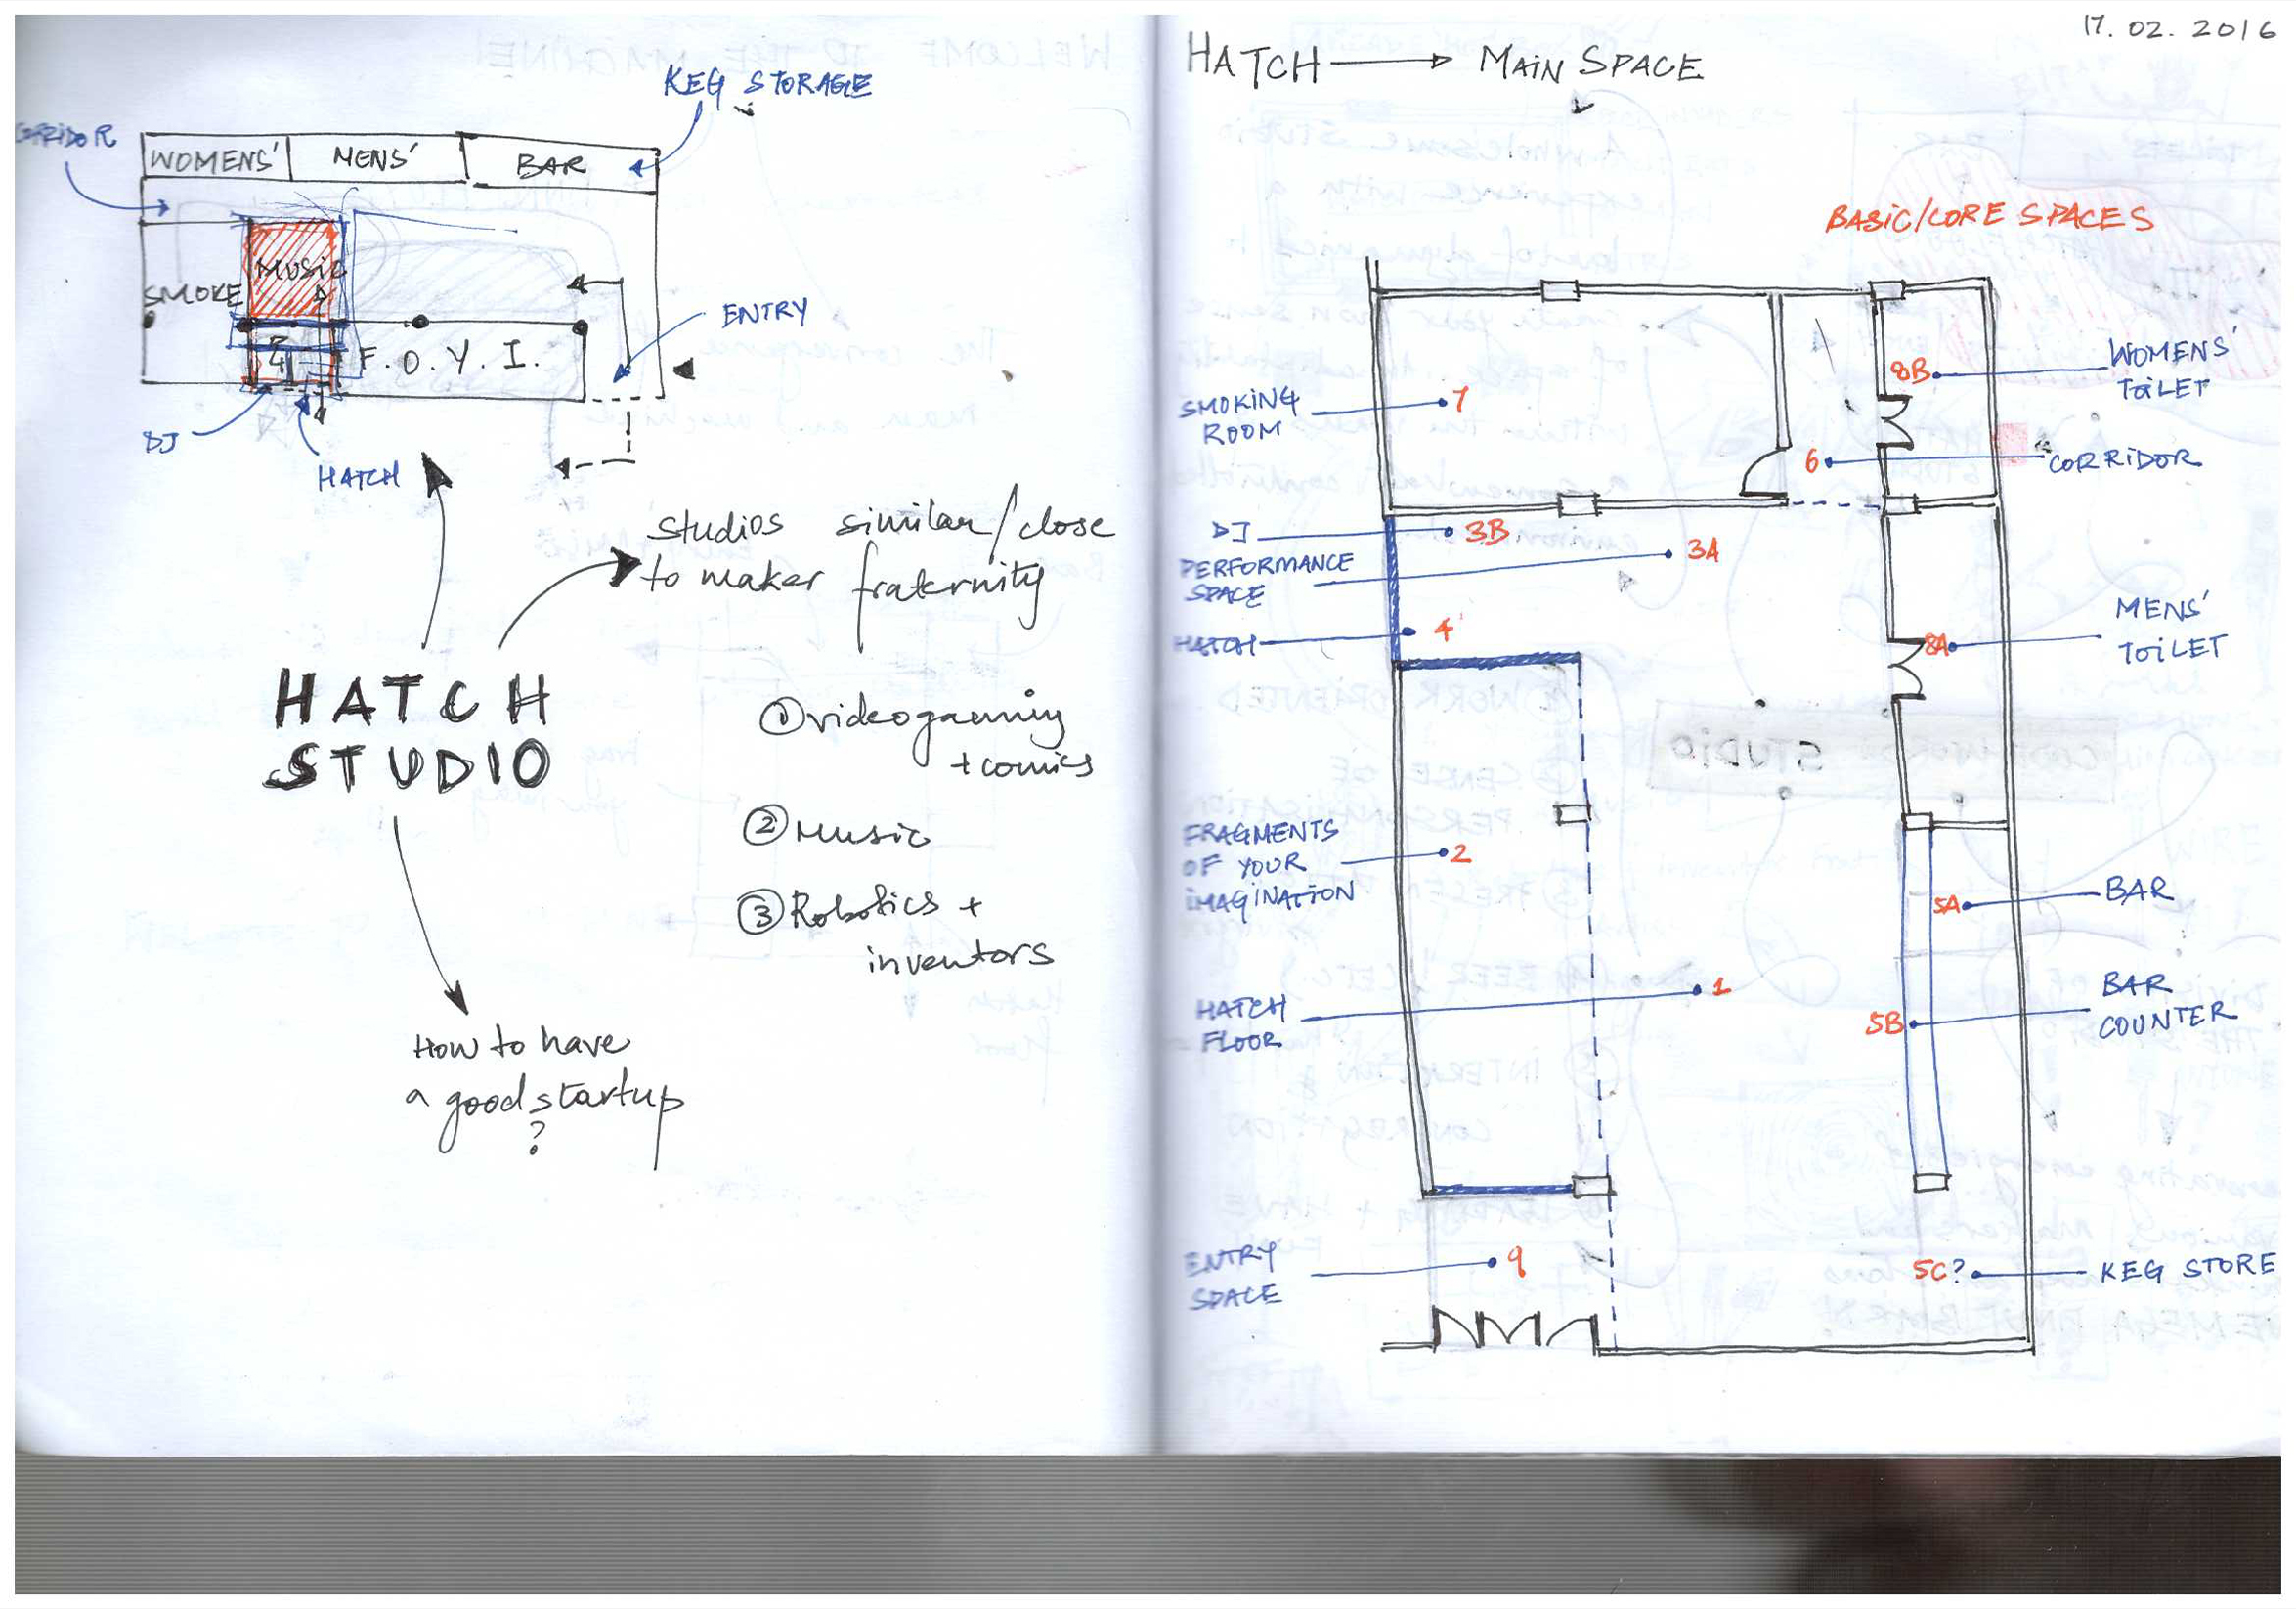 KEG STORAGE
CORRIDOR
WOMENS'
MENS'
BAR
MUSIC
SMOKE
ENTRY
F.O.Y.I.
DJ
HATCH
studios similar/close
to maker fraternity
HATCH
STUDIO
① videogaming
+ comics
② Music
③ Robotics +
inventors
How to have
a good startup
?
17.02.2016
HATCH → MAIN SPACE
BASIC/CORE SPACES
8B
WOMENS'
TOILET
SMOKING
ROOM
7
6
CORRIDOR
DJ
3B
3A
PERFORMANCE
SPACE
HATCH
4
MENS'
TOILET
8A
FRAGMENTS
OF YOUR
IMAGINATION
2
5A
BAR
HATCH
FLOOR
1
5B
BAR
COUNTER
ENTRY
SPACE
9
5C?
KEG STORE